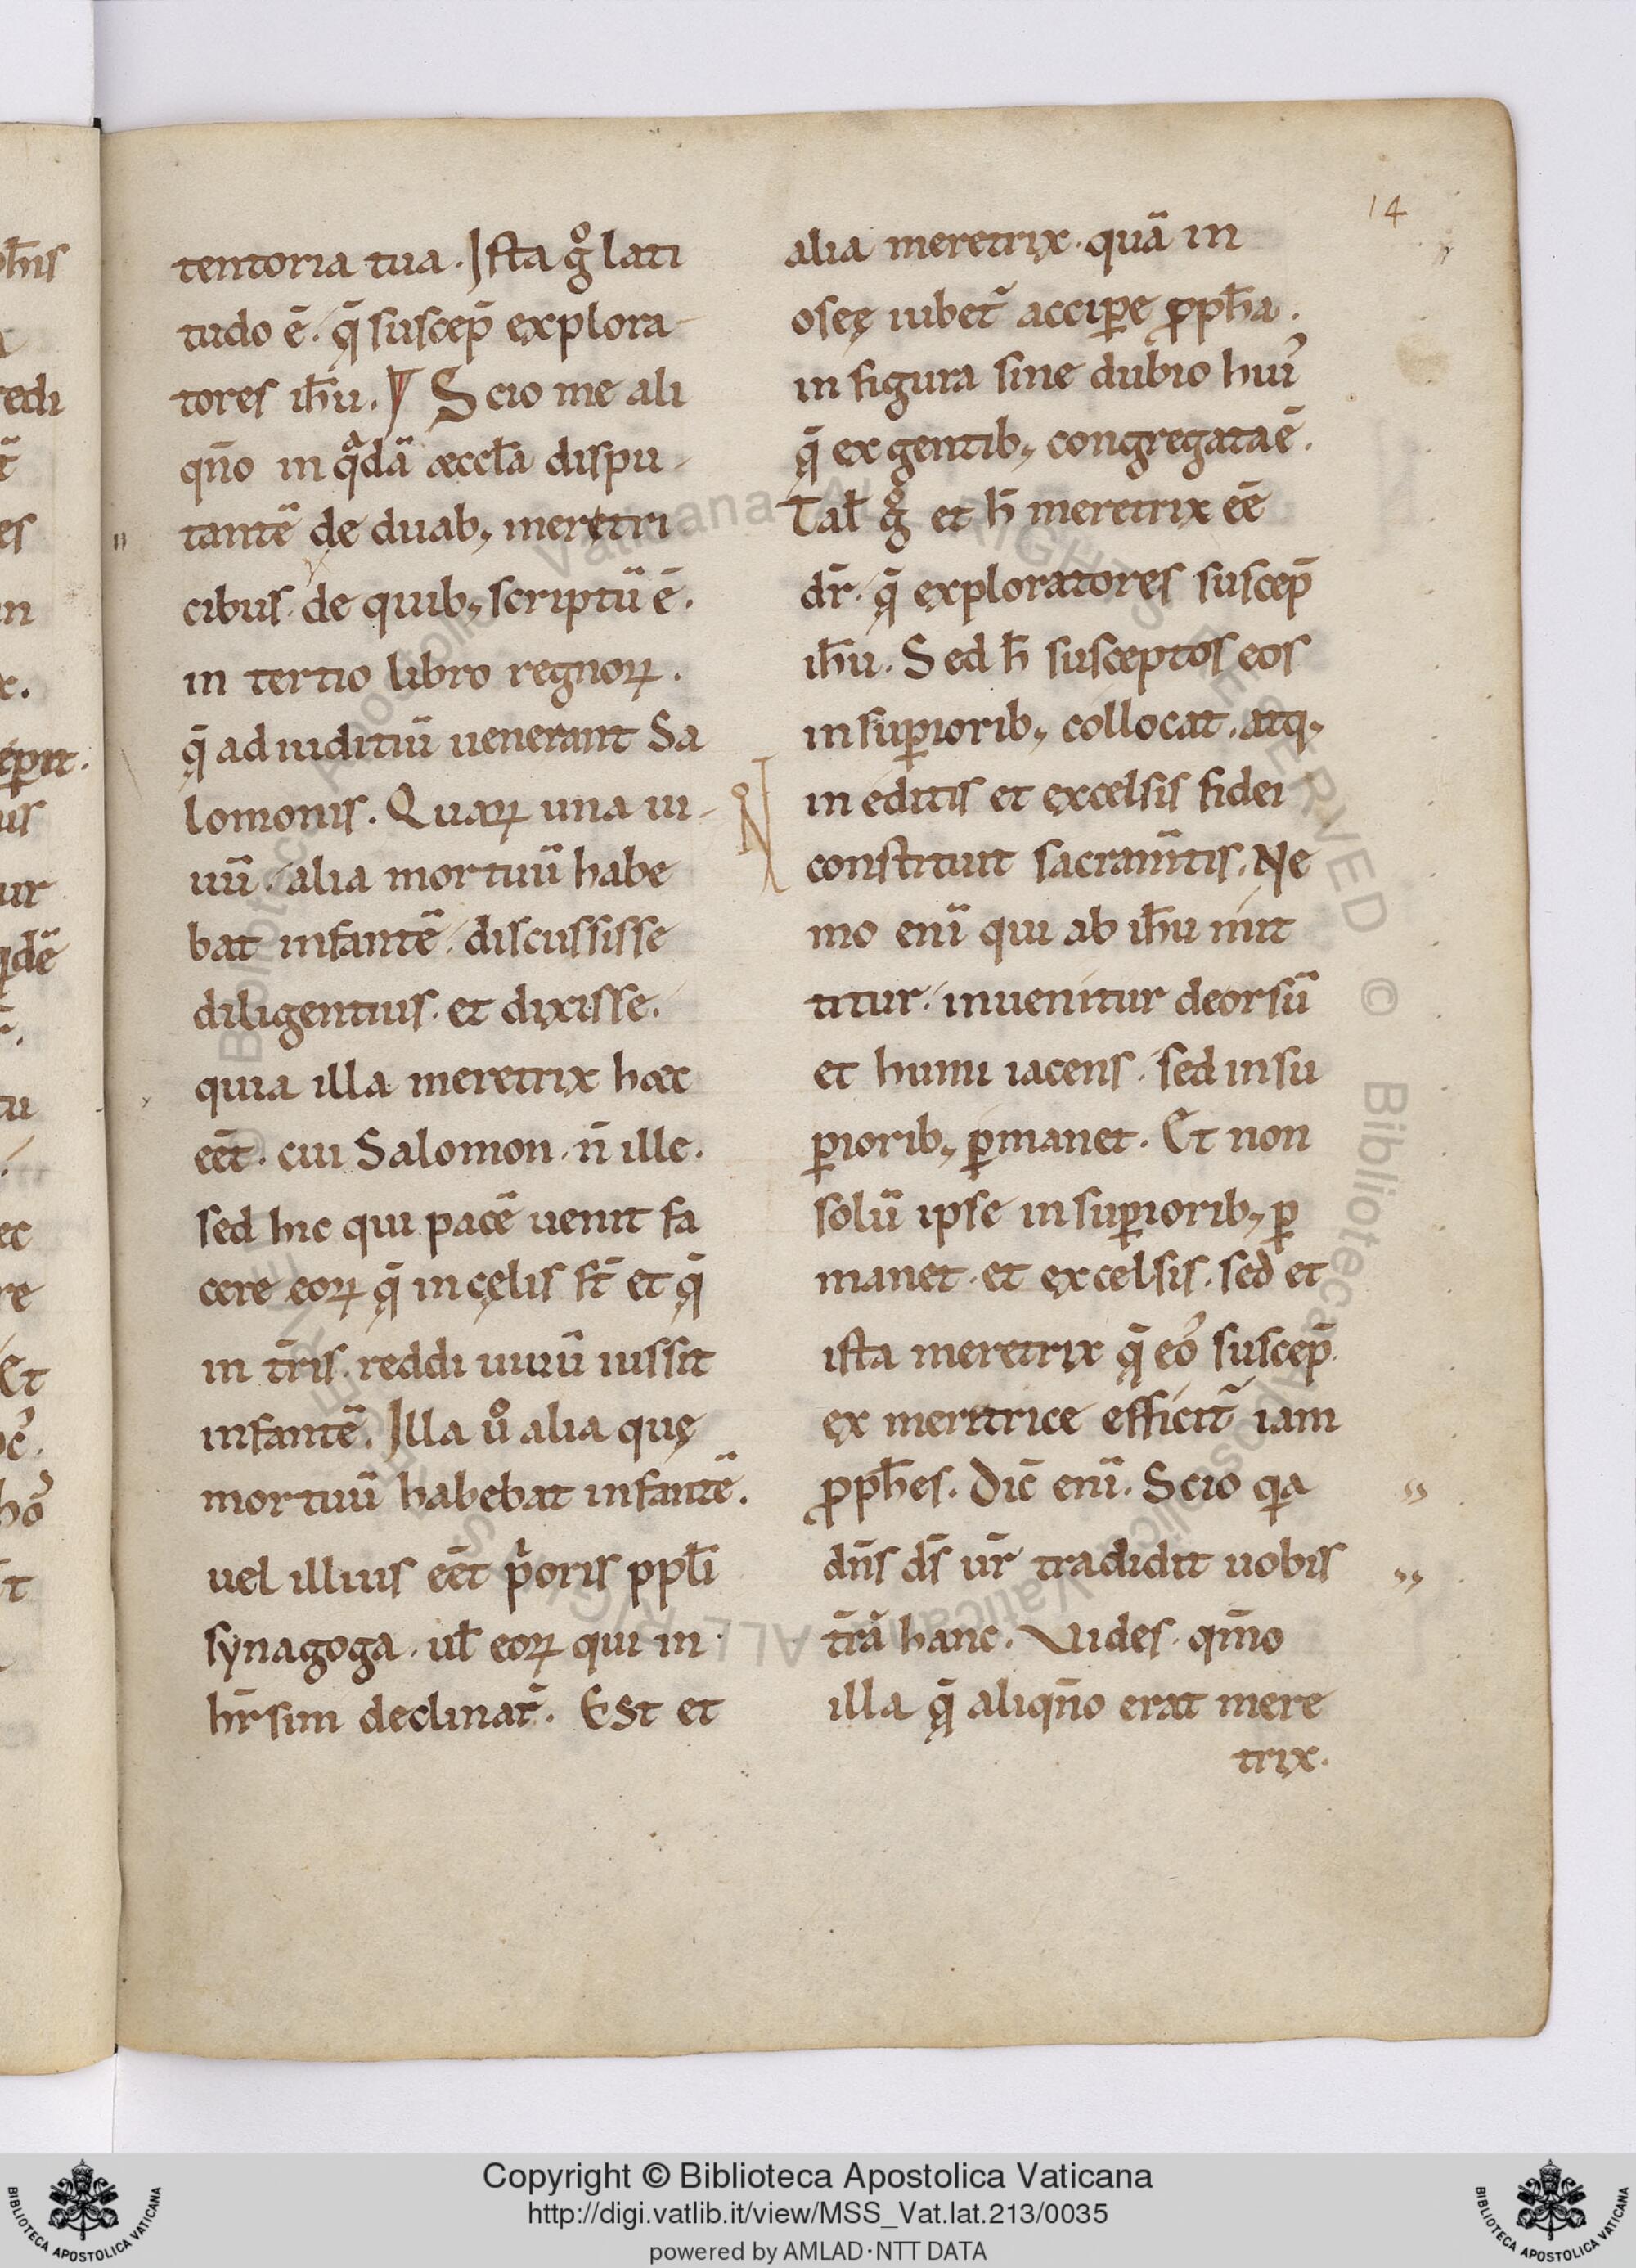 14
tentoria tua. Ista g̊ lati
tudo ē. q̨̄ suscep̄ explora-
tores ih̄u. Scio me ali
qn̄o in qͣdā æccl̄a dispu-
tantē de duab; meretri
cibus de quib; scriptū ē.
in tertio libro regnoꝝ.
q̨̄ ad iuditiū uenerant Sa
lomonis. Quaꝝ una ui-
uū. alia mortuū habe
bat infantē. discussisse
diligentius. et dixisse.
quia illa meretrix hæc
eēt. cui Salomon. n̄ ille.
sed hic qui pacē uenit fa
cere eoꝝ q̨̄ in cęlis st̄ et q̨̄
in tr̄is. reddi uiuū iussit
infantē. Illa ů alia quę
mortuū habebat infantē.
uel illius eēt p̍oris ppl̄i
synagoga. ul̄ eoꝝ qui in
hr̄sim declinar̄. Est et
alia meretrix. quā in
oseę iubet᷑ acciꝑe ꝓph̄a.
in figura sine dubio hui᾽
q̨̄ ex gentib; congregata ē.
Tal̄ g̊ et h̄ meretrix eē
dr̄. q̨̄ exploratores suscep̄
ih̄u. Sed h̄ susceptos eos
in suꝑiorib; collocat. atq;
in editis et excelsis fidei
constituit sacram̄tis. Ne
mo eni̅ qui ab ih̄u mit
titur. inuenitur deorsū
et humi iacens. sed in su
ꝑiorib; ꝑmanet. Et non
solū ipse in suꝑiorib; ꝑ
manet. et excelsis. sed et
ista meretrix q̨̄ eo᾽ suscep̄.
ex meretrice efficit᷑ iam
ꝓph̄es. Dic̄ eni̅. Scio qͥa
dn̄s ds̄ ur̄ tradidit uobis
tr̄ā hanc. Vides. qm̄o
illa q̨̄ aliqn̄o erat mere
trix.
Copyright © Biblioteca Apostolica Vaticana
http://digi.vatlib.it/view/MSS_Vat.lat.213/0035
powered by AMLAD·NTT DATA
BIBLIOTECA APOSTOLICA VATICANA
BIBLIOTECA APOSTOLICA VATICANA